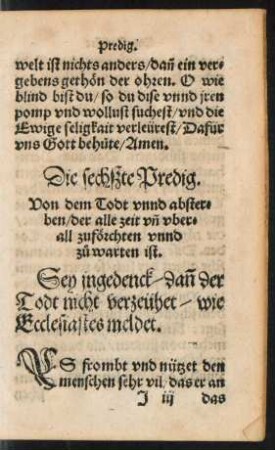 Predig.
welt ist nichts anders/dañ ein ver⸗
gebens gethön der ohren. O wie
blind bist du/ so du dise vnnd jren
pomp vnd wollust suchest/vnd die
Ewige seligkait verleürest/Dafür
vns Gott behüte/Amen.
Die sechßte Predig.
Von dem Todt vnnd abster⸗
ben/der alle zeit vñ vber⸗
all zuförchten vnnd
zůwarten ist.
Sey ingedenck/dañ der
Todt nicht verzeühet/wie
Ecclesiastes meldet.
ES frombt vnd nützet den
menschen sehr vil, das er an
J iij das